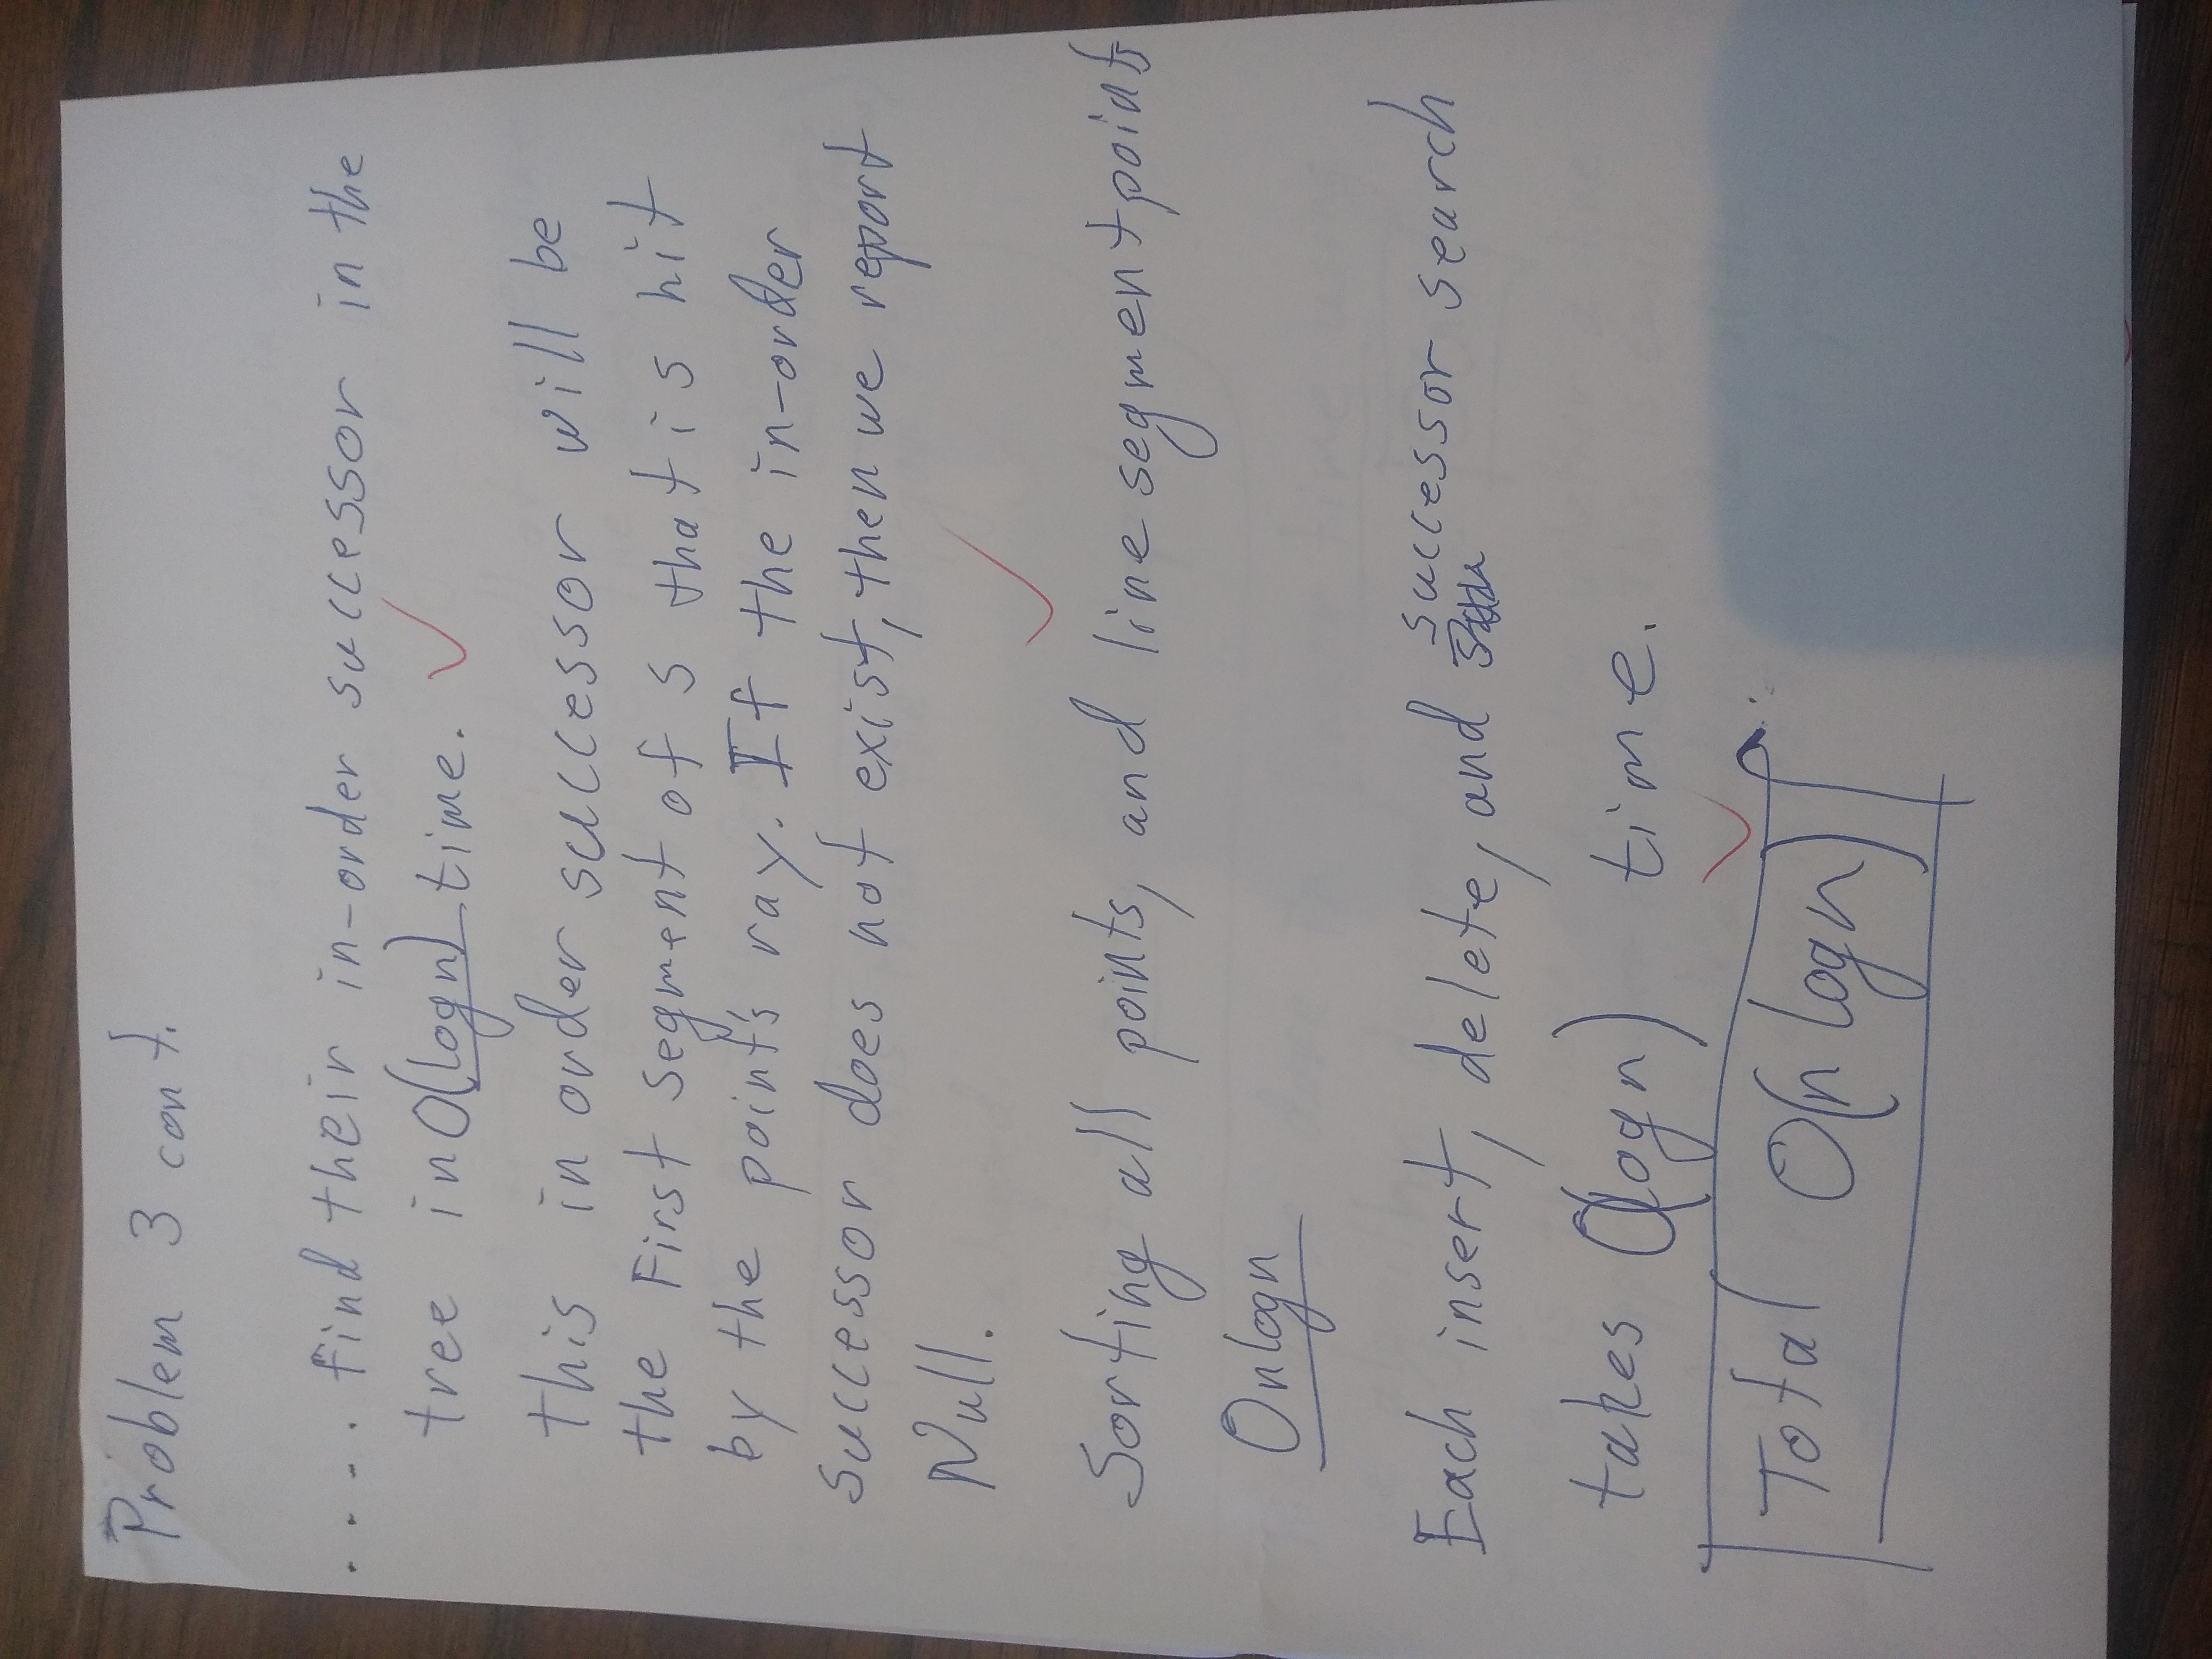 Problem 3 cont.
.... find their in-order successor in the
tree in O(logn) time.
this in order successor will be
the First segment of S that is hit
by the point's ray. If the in-order
successor does not exist, then we report
Null.
Sorting all points, and line segment points
Onlogn
Each insert, delete, and successor search
takes O(logn) time.
Total O(n logn)